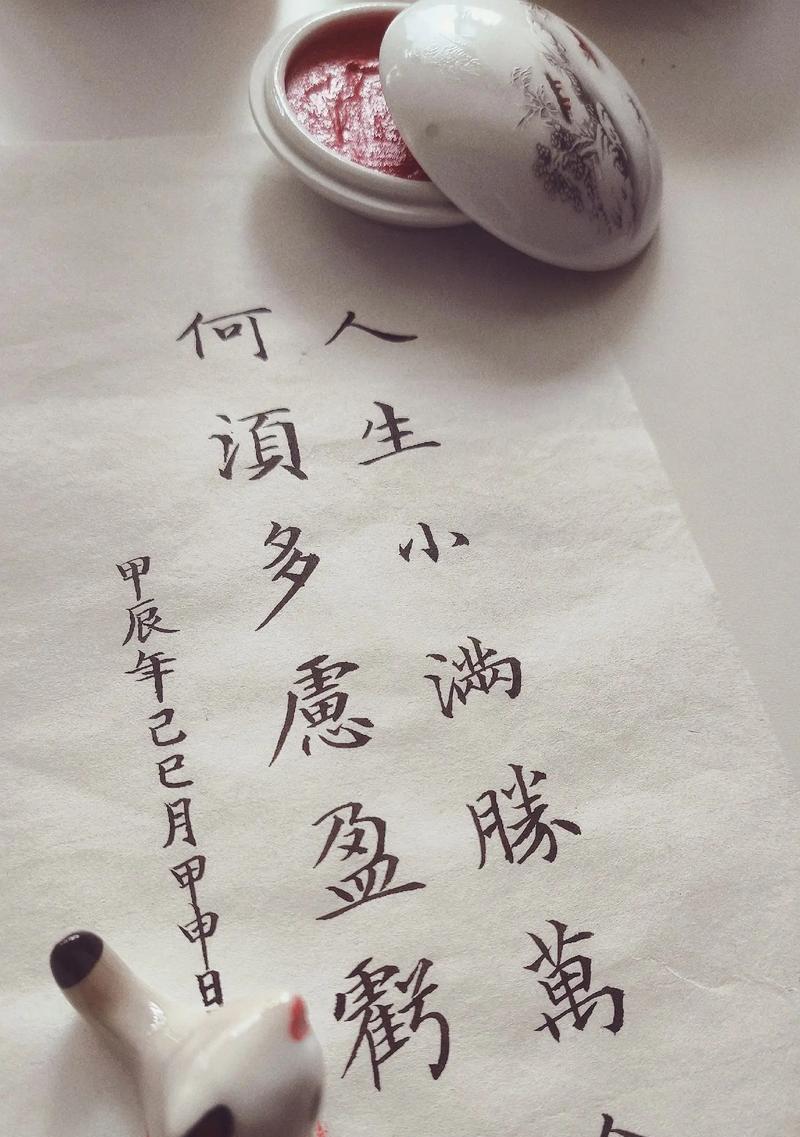 人生小滿勝萬
何須多慮盈虧
甲辰年己巳月甲申日